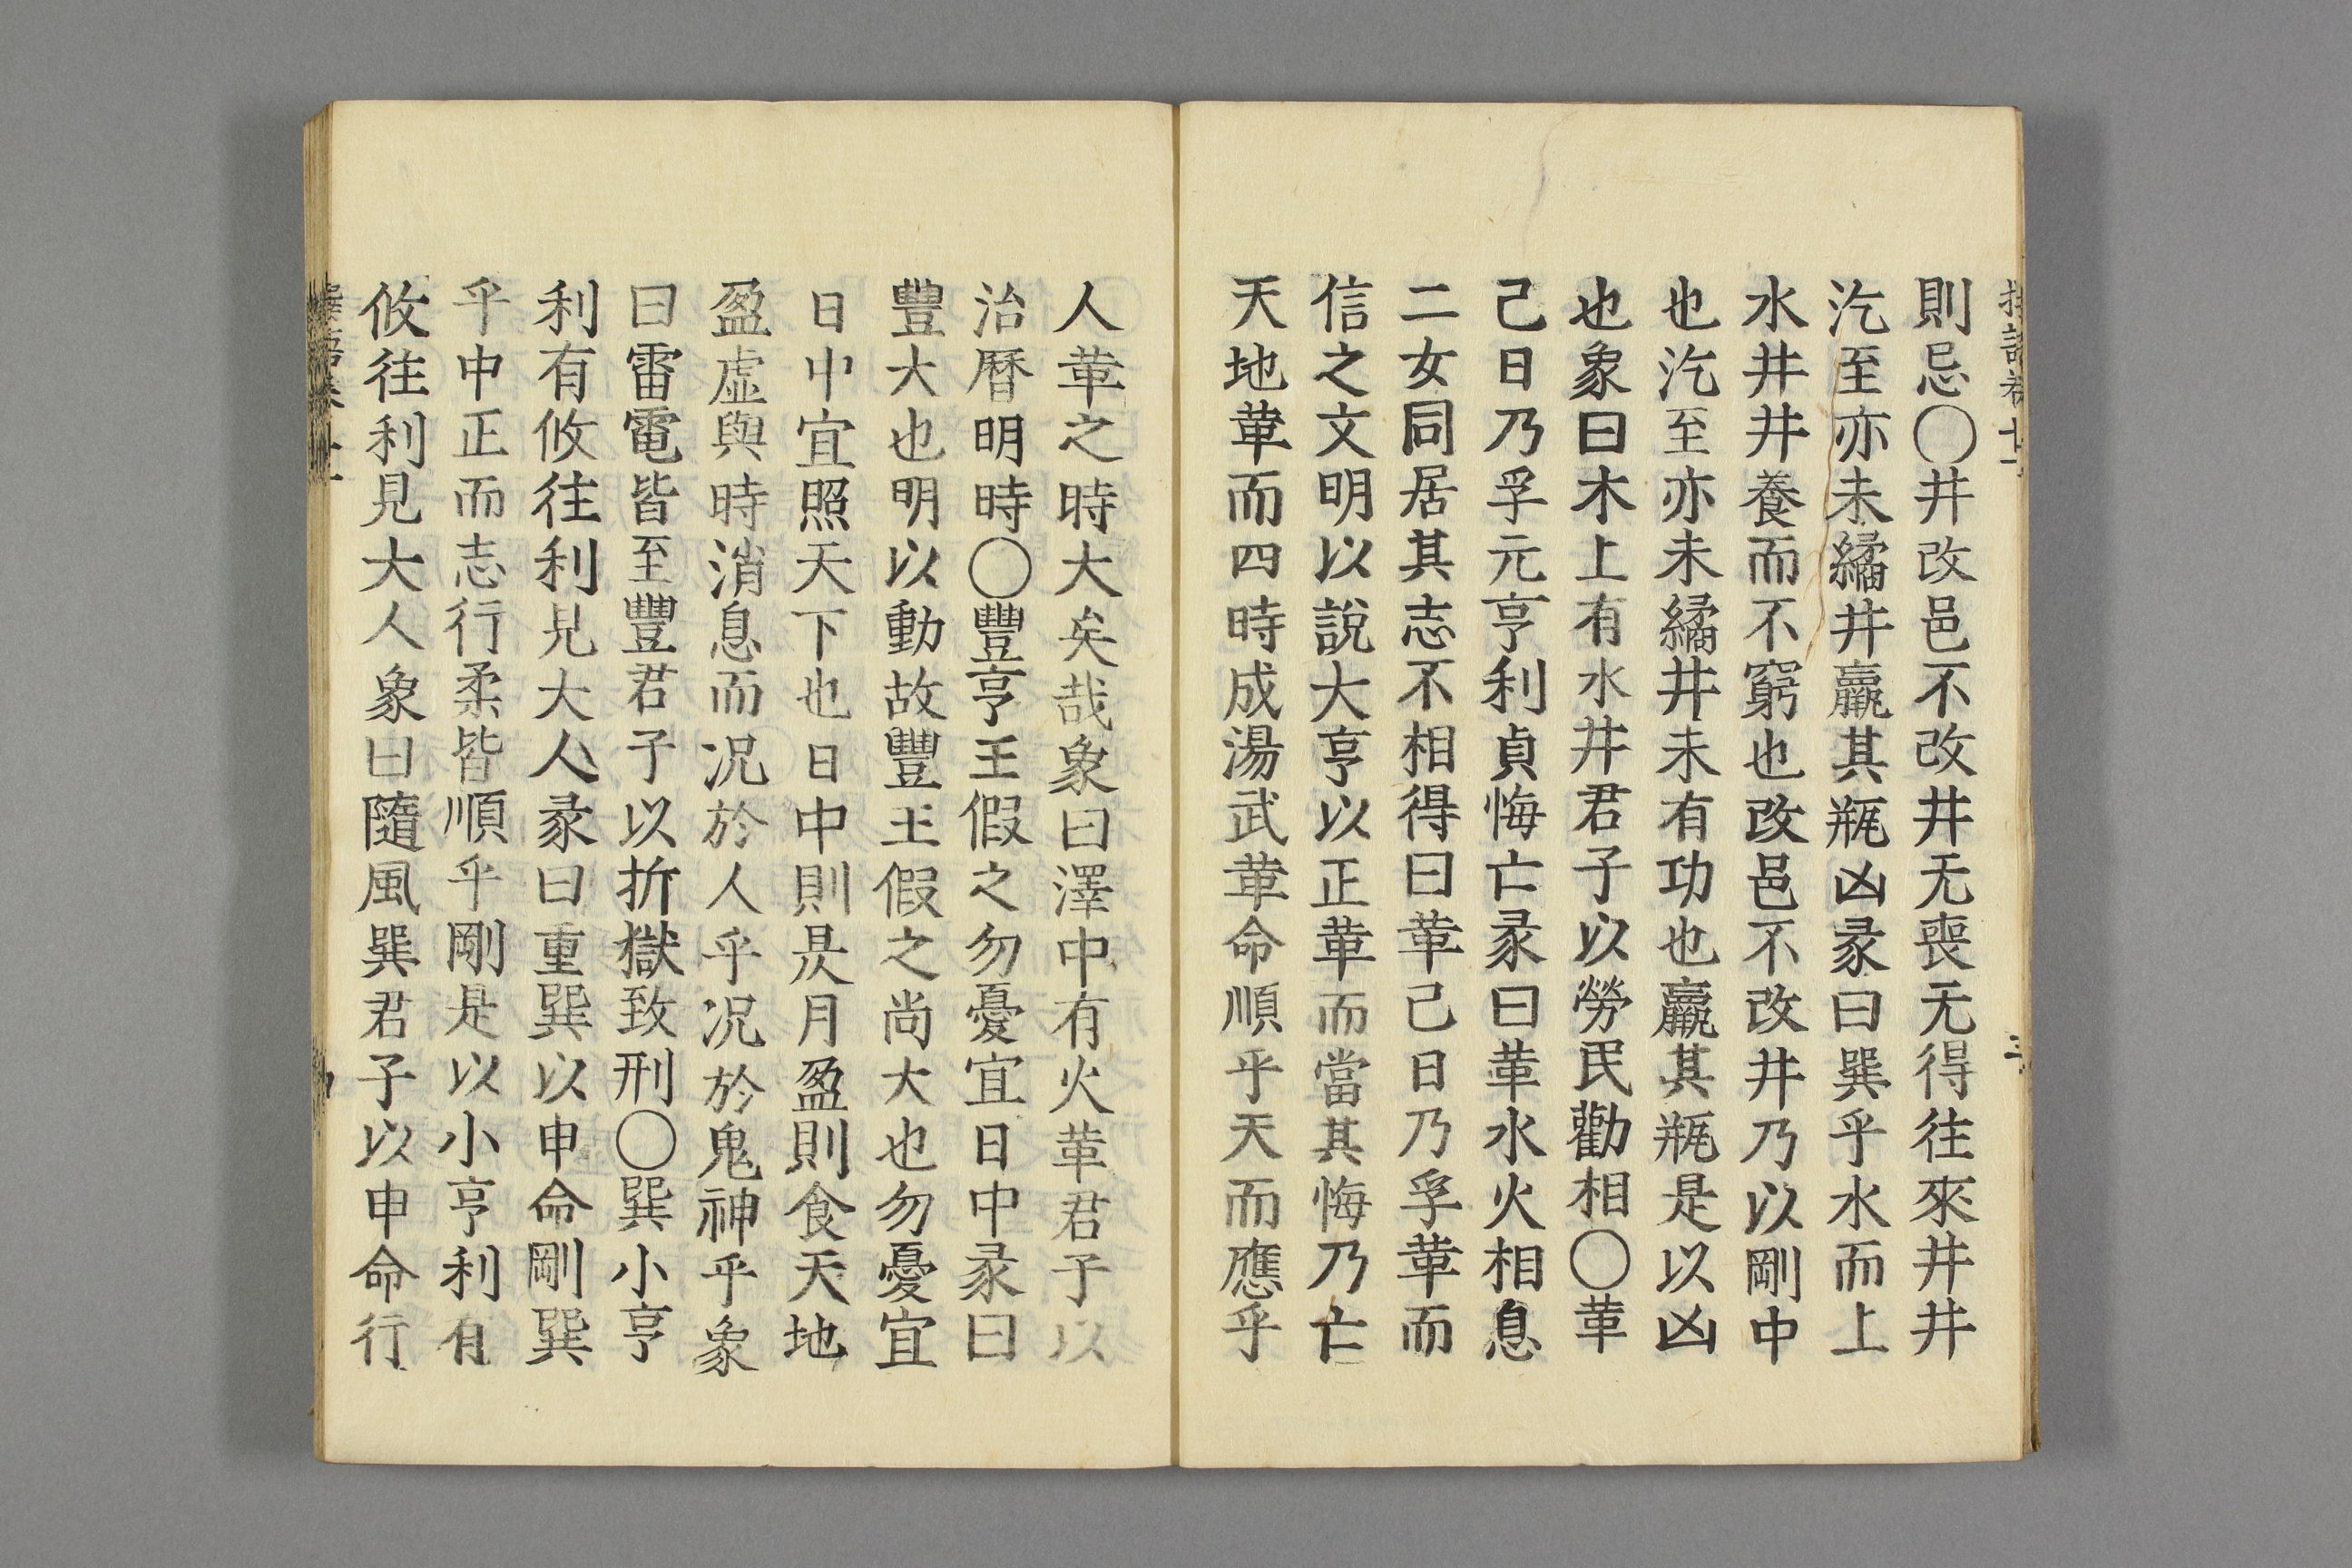 則忌〇井改邑不改井无喪无得往來井井
汔至亦未繘井羸其瓶凶彖曰巽乎水而上
水井井養而不窮也改邑不改井乃以剛中
也汔至亦未繘井未有功也羸其瓶是以凶
也象曰木上有水井君子以勞民勸相〇革
己日乃孚元亨利貞悔亡彖曰革水火相息
二女同居其志不相得曰革己日乃孚革而
信之文明以說大亨以正革而當其悔乃亡
天地革而四時成湯武革命順乎天而應乎
人革之時大矣哉象曰澤中有火革君子以
治曆明時〇豐亨王假之勿憂宜日中彖曰
豐大也明以動故豐王假之尚大也勿憂宜
日中宜照天下也日中則昃月盈則食天地
盈虛與時消息而况於人乎况於鬼神乎象
曰雷電皆至豐君子以折獄致刑〇巽小亨
利有攸往利見大人彖曰重巽以申命剛巽
乎中正而志行柔皆順乎剛是以小亨利有
攸往利見大人象曰隨風巽君子以申命行